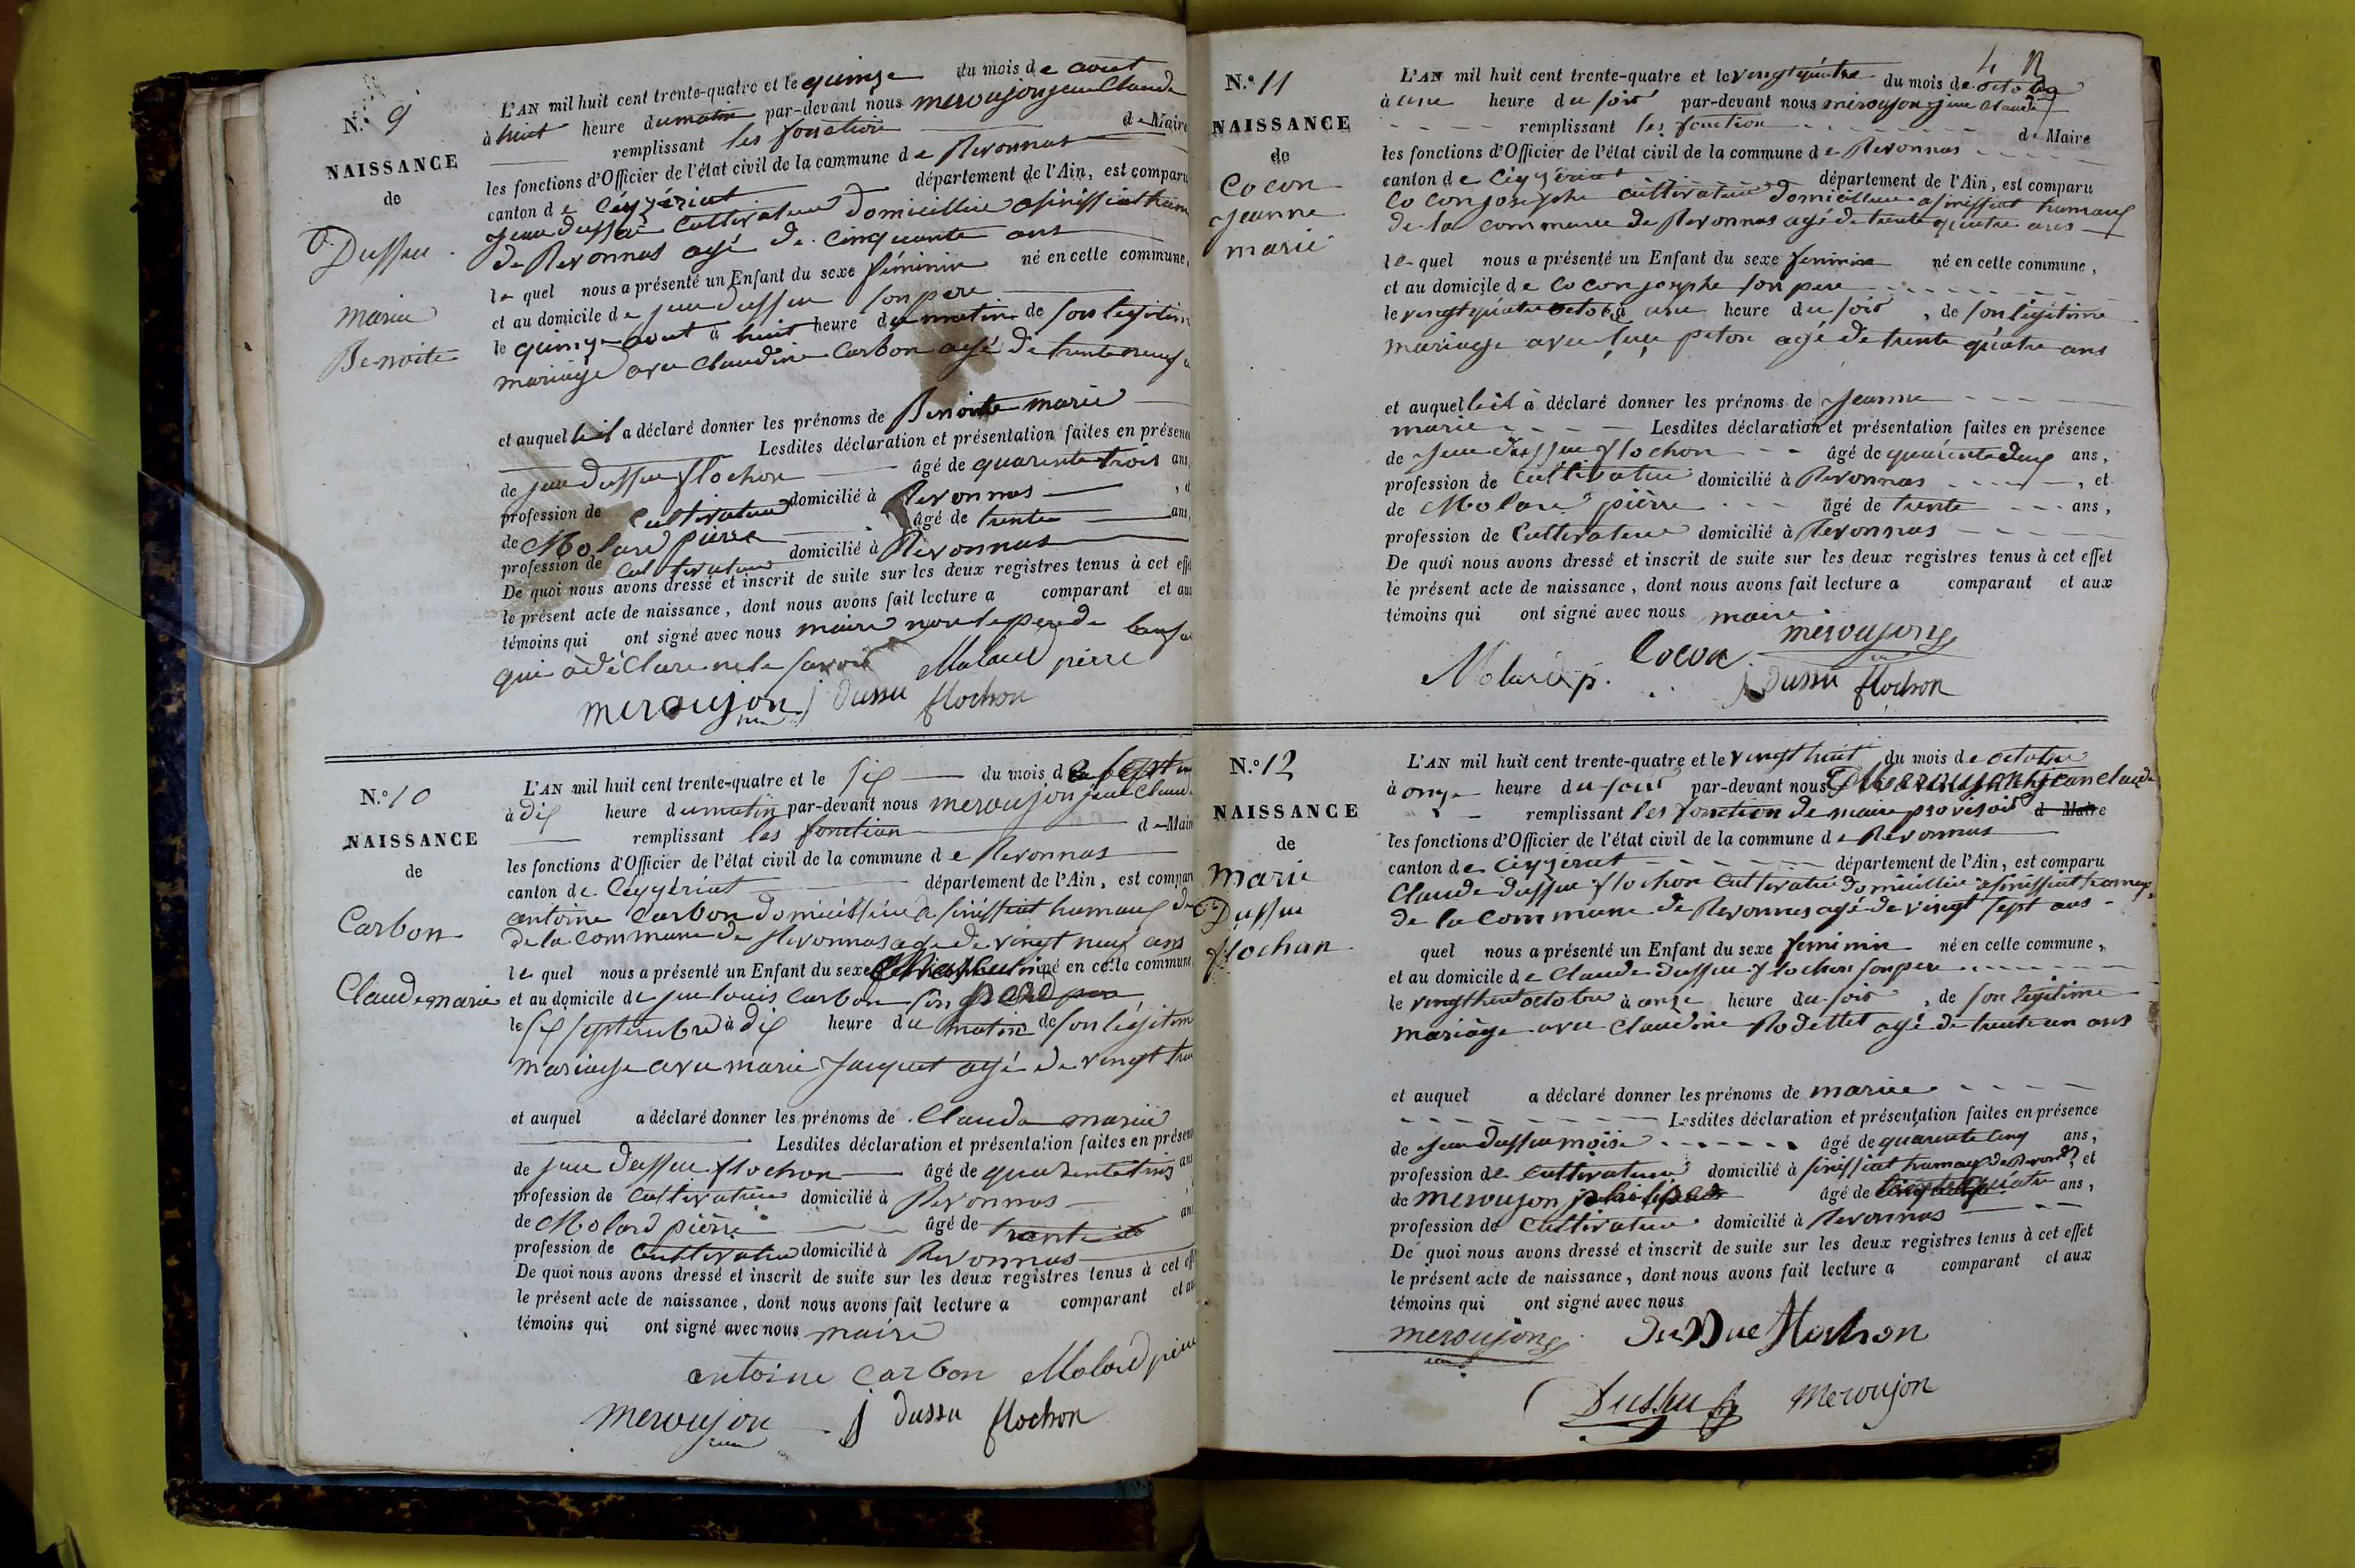 N.º 9
NAISSANCE
de
Dussu
marie
Benoite
L'AN mil huit cent trente-quatre et le quinze du mois de aout
à huit heure du matin par-devant nous meroujon jean Claude
remplissant les fonction de Maire
les fonctions d'Officier de l'état civil de la commune de Revonnas
canton de Ceyzériat département de l'Ain, est comparu
jean dussu Cultivateur domicillié a
de Revonnas agé de cinquante ans
le quel nous a présenté un Enfant du sexe féminin né en cette commune,
et au domicile de jean dussu son pere
le quinze aout à huit heure du matin de son legitim
mariage avec claudine Carbon agé de trente neuf
et auquel il a déclaré donner les prénoms de Benoite marie
Lesdites déclaration et présentation faites en présen
de jean dussu flochon âgé de quarente trois ans,
profession de Cultivateur domicilié à Revonnas, et
de Molard pierre âgé de trente ans,
profession de cultivateur domicilié à Revonnas
De quoi nous avons dressé et inscrit de suite sur les deux registres tenus à cet eff
le présent acte de naissance, dont nous avons fait lecture a comparant et aux
témoins qui ont signé avec nous maire non le pere de
qui à déclaré ne le savoir Molard pierre
meroujon j dussu flochon
N.º 10
NAISSANCE
de
Carbon
Claude marie
L'AN mil huit cent trente-quatre et le six du mois de sept
à dix heure du matin par-devant nous meroujon jean Claude
remplissant les fonction de Mair
les fonctions d'Officier de l'état civil de la commune de Revonnas
canton de Ceyzériat département de l'Ain, est compar
antoine Carbon domicillié a
de la commune de Revonnas agé de vingt neuf ans
le quel nous a présenté un Enfant du sexe né en cette commune
et au domicile de jean louis Carbon son
le six septembre à dix heure du matin de son légitim
mariage avec marie Jacquet agé de vingt
et auquel a déclaré donner les prénoms de Claude marie
Lesdites déclaration et présentation faites en présen
de jean dussu flochon âgé de quarente trois ans
profession de Cultivateur domicilié à Revonnas
de Molard pierre âgé de trente
profession de Cultivateur domicilié à Revonnas
De quoi nous avons dressé et inscrit de suite sur les deux registres tenus à cet eff
le présent acte de naissance, dont nous avons fait lecture a comparant et au
témoins qui ont signé avec nous maire
antoine Carbon Molard pierre
meroujon j dussu flochon
N.º 11
NAISSANCE
de
Cocon
jeanne
marie
L'AN mil huit cent trente-quatre et le vingt quatre du mois de octobre
à une heure du soir par-devant nous meroujon jean claude
remplissant les fonction de Maire
les fonctions d'Officier de l'état civil de la commune de Revonnas
canton de Ceyzériat département de l'Ain, est comparu
Cocon josephe cultivateur domicillié a
de la commune de Revonnas agé de trente quatre ans
le quel nous a présenté un Enfant du sexe feminin né en cette commune,
et au domicile de Cocon josephe son pere
le vingt quatre octobre à une heure du soir, de son légitime
mariage avec peton agé de trente quatre ans
et auquel il à déclaré donner les prénoms de Jeanne
marie Lesdites déclaration et présentation faites en présence
de jean dussu flochon âgé de quarente deux ans,
profession de Cultivateur domicilié à Revonnas, et
de Molard pièrre âgé de trente ans,
profession de Cultivateur domicilié à Revonnas
De quoi nous avons dressé et inscrit de suite sur les deux registres tenus à cet effet
le présent acte de naissance, dont nous avons fait lecture a comparant et aux
témoins qui ont signé avec nous maire
Cocon meroujon
Molard p. j dussu flochon
N.º 12
NAISSANCE
de
Marie
Dussu
flochon
L'AN mil huit cent trente-quatre et le vingt huit du mois de octobre
à onze heure du soir par-devant nous Meroujon jean claude
remplissant les fonction de maire provisoir d Maire
les fonctions d'Officier de l'état civil de la commune de Revonnas
canton de Ceyzériat département de l'Ain, est comparu
Claude dussu flochon Cultivateur domicillié a
de la commune de Revonnas agé de vingt sept ans
quel nous a présenté un Enfant du sexe feminin né en cette commune,
et au domicile de Claude dussu flochon son pere
le vingt huit octobre à onze heure du soir, de son legitime
mariage avec claudine Rodettet agé de trente un ans
et auquel a déclaré donner les prénoms de marie
Lesdites déclaration et présentation faites en présence
de jean dussu moise âgé de quarente cinq ans,
profession de cultivateur domicilié à de Revonnas, et
de meroujon âgé de ans,
profession de Cultivateur domicilié à Revonnas
De quoi nous avons dressé et inscrit de suite sur les deux registres tenus à cet effet
le présent acte de naissance, dont nous avons fait lecture a comparant et aux
témoins qui ont signé avec nous
meroujon dussue flochon
Dussu Meroujon